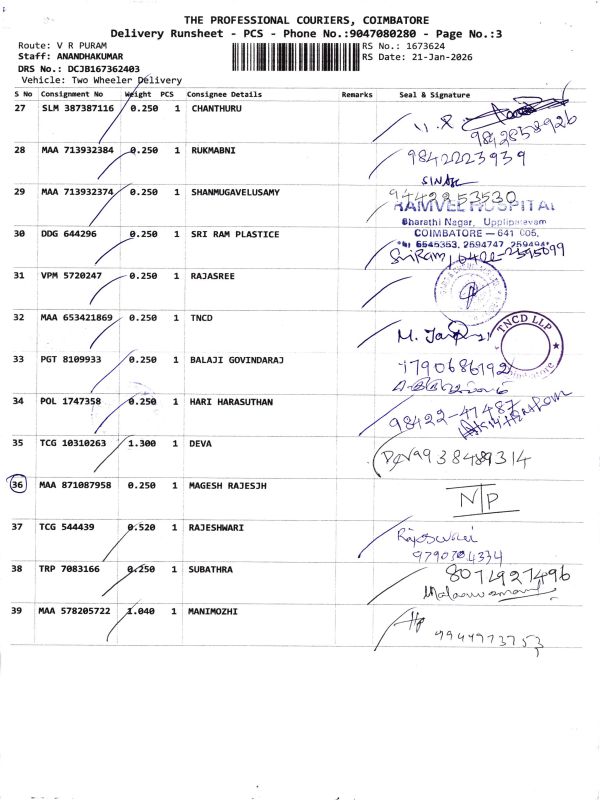 THE PROFESSIONAL COURIERS, COIMBATORE
Delivery Runsheet - PCS - Phone No.:9047080280 - Page No.:3
Route: V R PURAM RS No.: 1673624
Staff: ANANDHAKUMAR RS Date: 21-Jan-2026
DRS No.: DCJB167362403
Vehicle: Two Wheeler Delivery
S No Consignment No Weight PCS Consignee Details Remarks Seal & Signature
27 SLM 387387116 0.250 1 CHANTHURU
9842858926
28 MAA 713932384 0.250 1 RUKMABNI 9842223939
29 MAA 713932374 0.250 1 SHANMUGAVELUSAMY 9442253530
RAMVEL HOSPITAL
Bharathi Nagar, Uppilipalayam
30 DDG 644296 0.250 1 SRI RAM PLASTICE COIMBATORE - 641 005.
Sriram
31 VPM 5720247 0.250 1 RAJASREE
32 MAA 653421869 0.250 1 TNCD TNCD LLP
Coimbatore
33 PGT 8109933 0.250 1 BALAJI GOVINDARAJ
34 POL 1747358 0.250 1 HARI HARASUTHAN 98422-47487
35 TCG 10310263 1.300 1 DEVA
36 MAA 871087958 0.250 1 MAGESH RAJESJH N/P
37 TCG 544439 0.520 1 RAJESHWARI
9790704334
38 TRP 7083166 0.250 1 SUBATHRA 8074927496
39 MAA 578205722 1.040 1 MANIMOZHI
9944973753